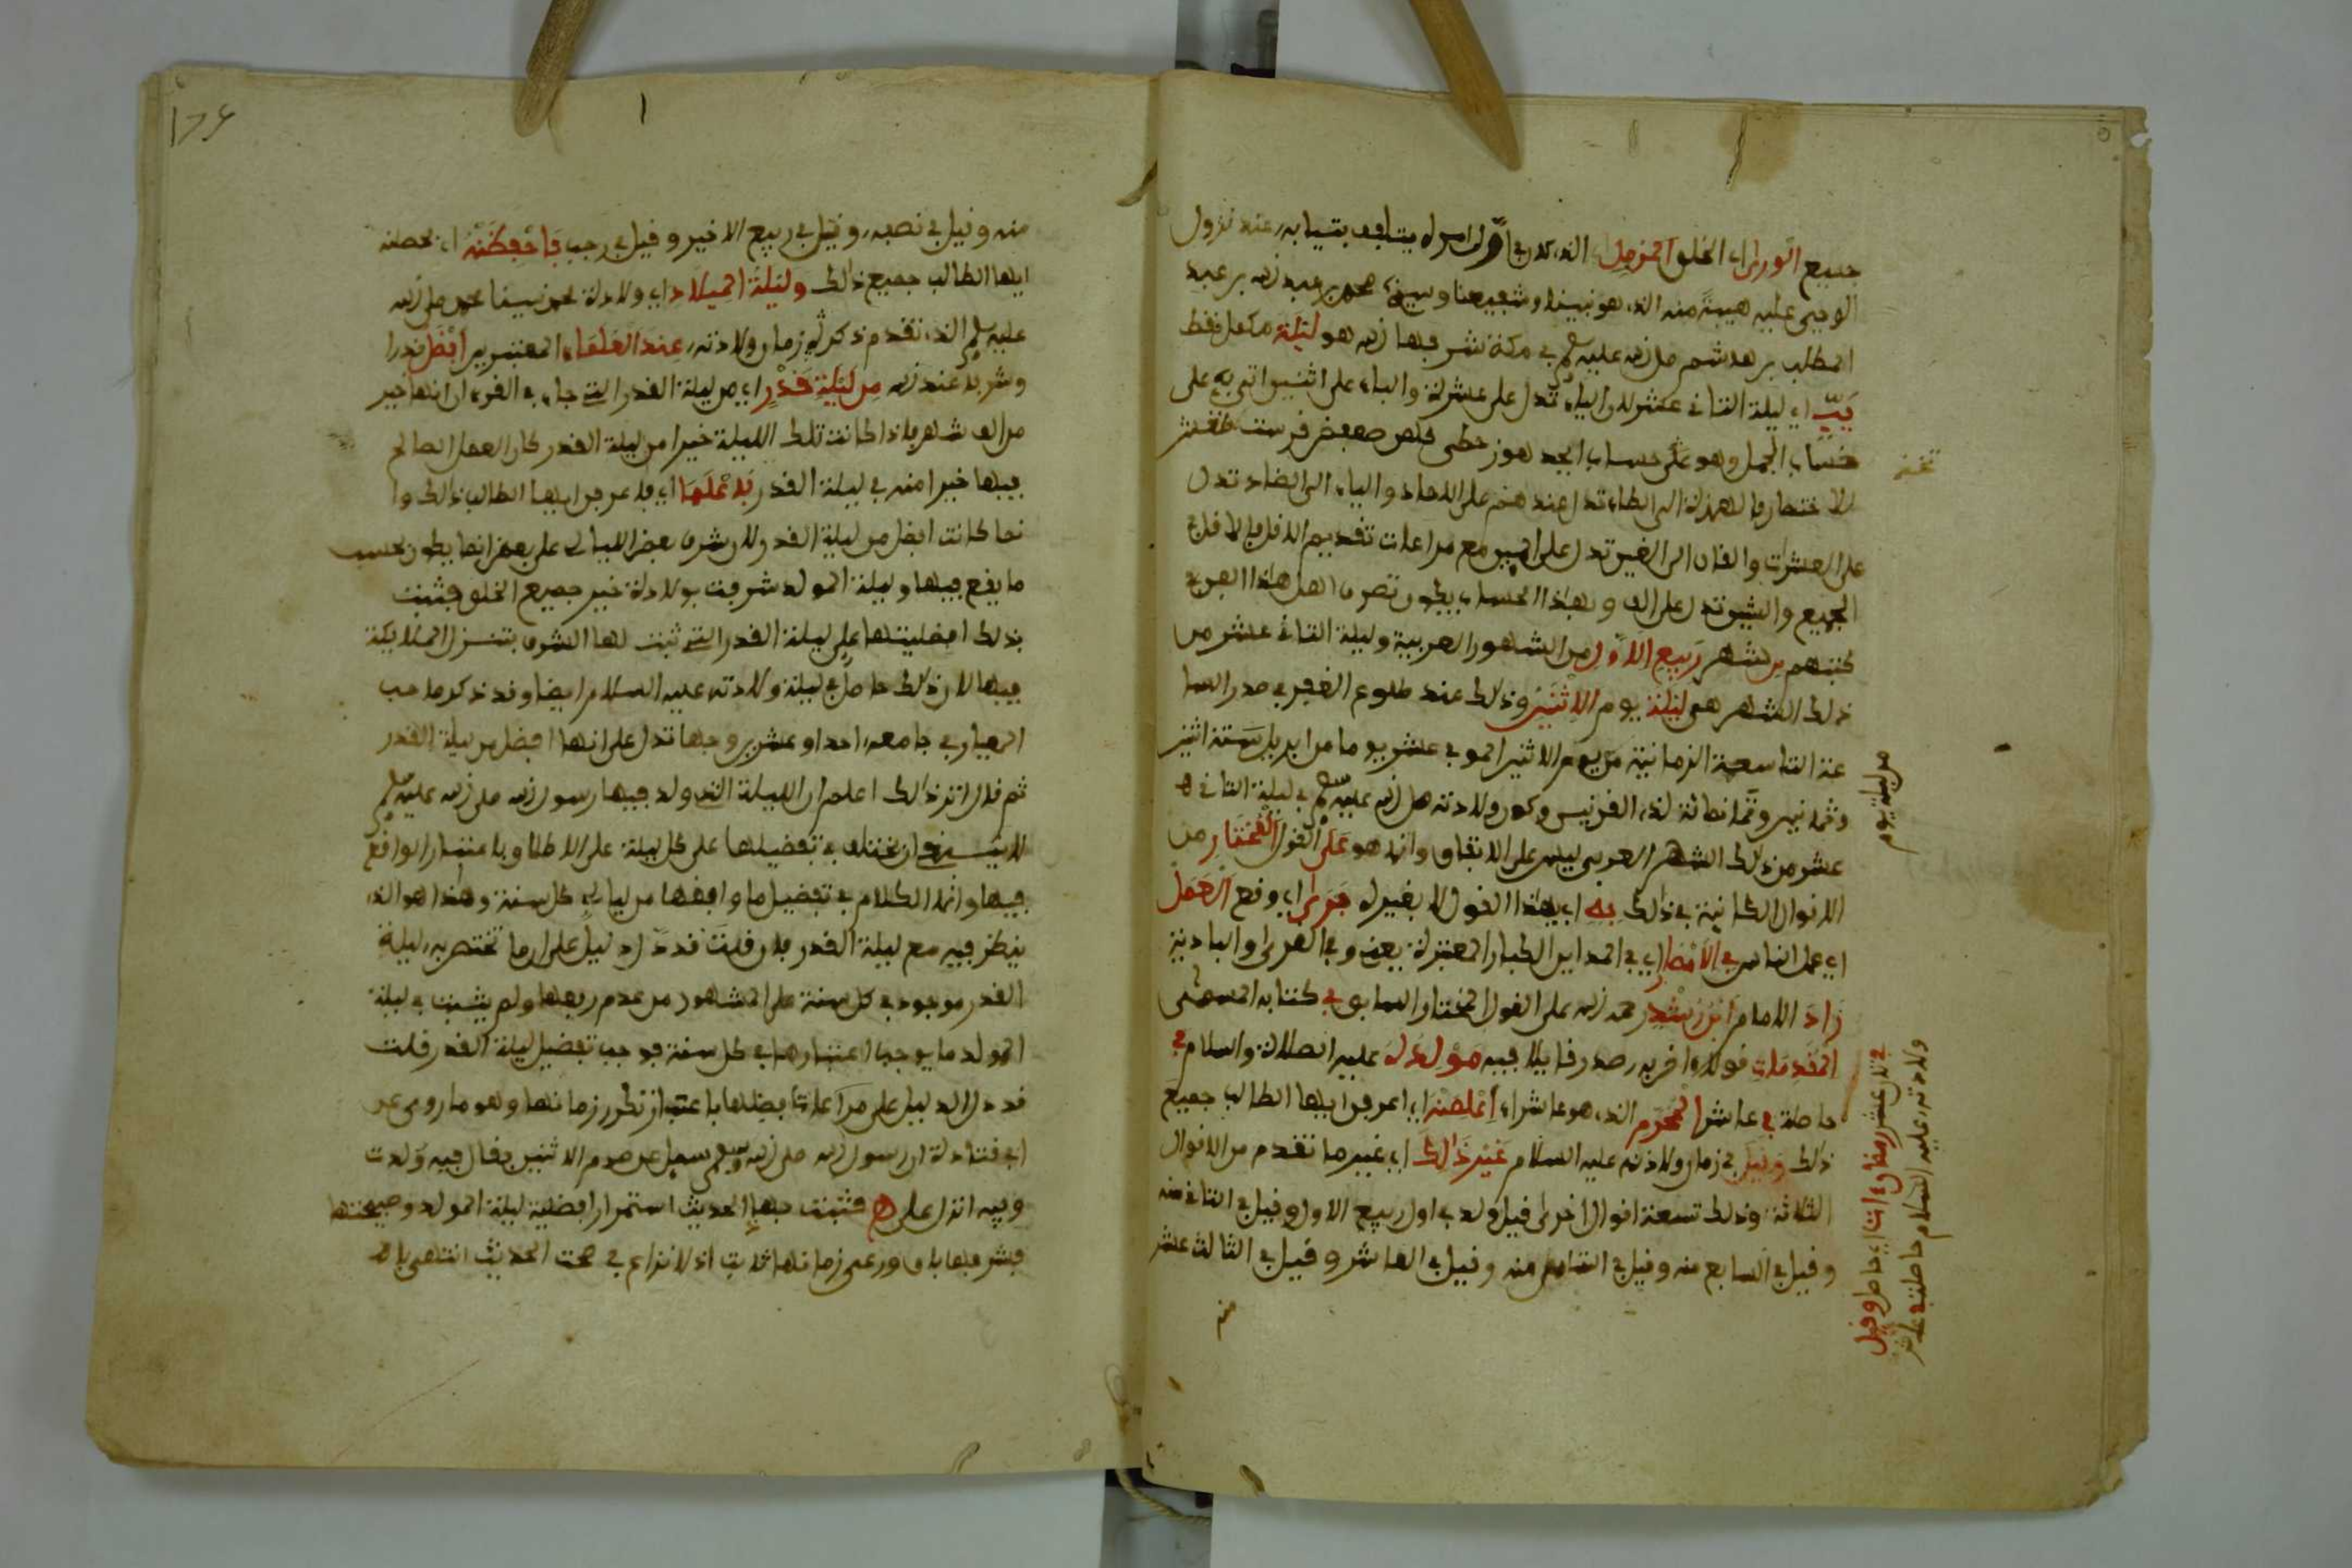 جميع الورى اي الخلق المزمل الذي كان في اول امره يتلفف بثيابه عند نزول
الوحي عليه هيبة منه الذي هو نبينا وشفيعنا وسيدنا محمد بن عبد الله بن عبد
المطلب بن هاشم صلى الله عليه وسلم في مكة شرفها الله هو ليلة مكمل فقط
يب اي ليلة الثاني عشر لان الياء تدل على عشرة والباء على اثنين اتى به على
حساب الجمل وهو على حساب ابجد هوز حطي كلمن صعفض قرست ثخذ ظغش
الاختصار فالهمزة الى الطاء تدل عندهم على الاحاد والياء الى الضاد تدل
على العشرات والقاف الى الغين تدل على المئين مع مراعات تقديم الاقل فالاقل في
الجميع والشين تدل على الف وبهذا الحساب يكون تصرف اهل هذا الفن في
كتبهم من شهر ربيع الاول من الشهور العربية وليلة الثاني عشر من
ذلك الشهر هي ليلة يوم الاثنين وذلك عند طلوع الفجر في صدر السا
عة التاسعة الزمانية من يوم الاثنين الموفي عشرين يوما من ابريل سنة اثنين
وثمانين وثمانمائة لذي القرنين وكون ولادته صلى الله عليه وسلم في ليلة الثاني
عشر من ذلك الشهر العربي ليس على الاتفاق وانما هو على القول المختار من
الاقوال الكائنة في ذلك به اي بهذا القول لا بغيره جرى اي وقع العمل
اي عمل الناس في الامصار اي في المداين الكبار المعتبرة يعني وفي القرى والبادية
زاد الامام ابن رشد رحمه الله على القول المختار السابق في كتابه المسمى
المقدمات قولا اخر به صدر قايلا فيه مولده عليه الصلاة والسلام في
حاصلة في عاشر المحرم الذي هو عاشوراء اعلمنه اي اعرفن ايها الطالب جميع
ذلك وقيل في زمان ولادته عليه السلام غير ذلك اي غير ما تقدم من الاقوال
الثلاثة وذلك تسعة اقوال اخرى قيل ولد في اول ربيع الاول وقيل في الثاني منه
وقيل في السابع منه وقيل في الثامن منه وقيل في العاشر وقيل في الثالث عشر
منه
من ليلة يوم
في ثاني عشر رمضان اتى اي حاصل وقيل
ولادته عليه السلام حاصلة في عاشر
١٢٤
منه وقيل في نصفه وقيل في ربيع الاخير وقيل في رجب فاحفظنه اي حصلنه
ايها الطالب جميع ذلك وليلة الميلاد اي ولادة محمد نبينا محمد صلى الله
عليه وسلم الذي تقدم ذكر زمان ولادته عند العلماء المعتبرين افضل قدرا
وشرفا عند الله من ليلة قدر اي من ليلة القدر التي جاء في القرءان انها خير
من الف شهر فاذا كانت تلك الليلة خيرا من ليلة القدر كان العمل الصالح
فيها خيرا منه في ليلة القدر فاعلما اي فاعرفن ايها الطالب ذلك وا
نما كانت افضل من ليلة القدر لان شرف بعض الليالي على بعض انما يكون بحسب
ما يقع فيها وليلة المولد شرفت بولادة خير جميع الخلق فثبتت
بذلك افضليتها على ليلة القدر التي ثبت لها الشرف بتنزل الملايكة
فيها لان ذلك حاصل في ليلة ولادته عليه السلام ايضا وقد ذكر صاحب
المعيار في جامعه احدا وعشرين وجها تدل على انها افضل من ليلة القدر
ثم قال اثر ذالك اعلم ان الليلة التي ولد فيها رسول الله صلى الله عليه وسلم
لا ينبغي ان يختلف في تفضيلها على كل ليلة على الاطلاق باعتبار الواقع
فيها وانما الكلام في تفضيل ما وافقها من ليالي كل سنة وهذا هو الذي
ينظر فيه مع ليلة القدر فان قلت قد دل دليل على ان ما تختص به ليلة
القدر موجود في كل سنة على المشهور من عدم رفعها ولم يثبت في ليلة
المولد ما يوجب اعتبارها في كل سنة فوجب تفضيل ليلة القدر قلت
قد دل الدليل على مراعات فضلها باعتبار تكرر زمانها وهو ما روي عن
ابي قتادة ان رسول الله صلى الله عليه وسلم سيل عن صوم الاثنين فقال فيه ولدت
وفيه انزل علي فثبت بهذا الحديث استمرار افضلية ليلة المولد وصبيحتها
فشرفها باق ورعي زمانها ثابت اذ لا نزاع في صحة الحديث انتهى باخ